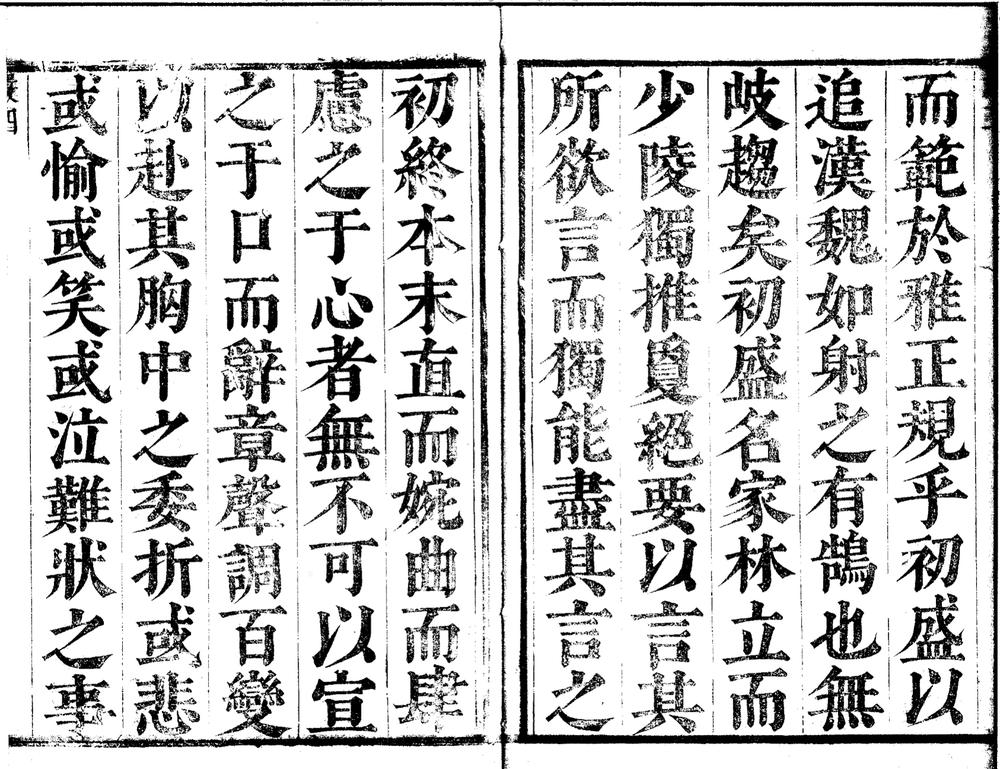 而範於雅正規乎初盛以
追漢魏如射之有鵠也無
岐趨矣初盛名家林立而
少陵獨推敻絕要以言其
所欲言而獨能盡其言之
初終本末直而婉曲而肆
慮之于心者無不可以宣
之于口而辭章聲調百變
以赴其胸中之委折或悲
或愉或笑或泣難狀之事